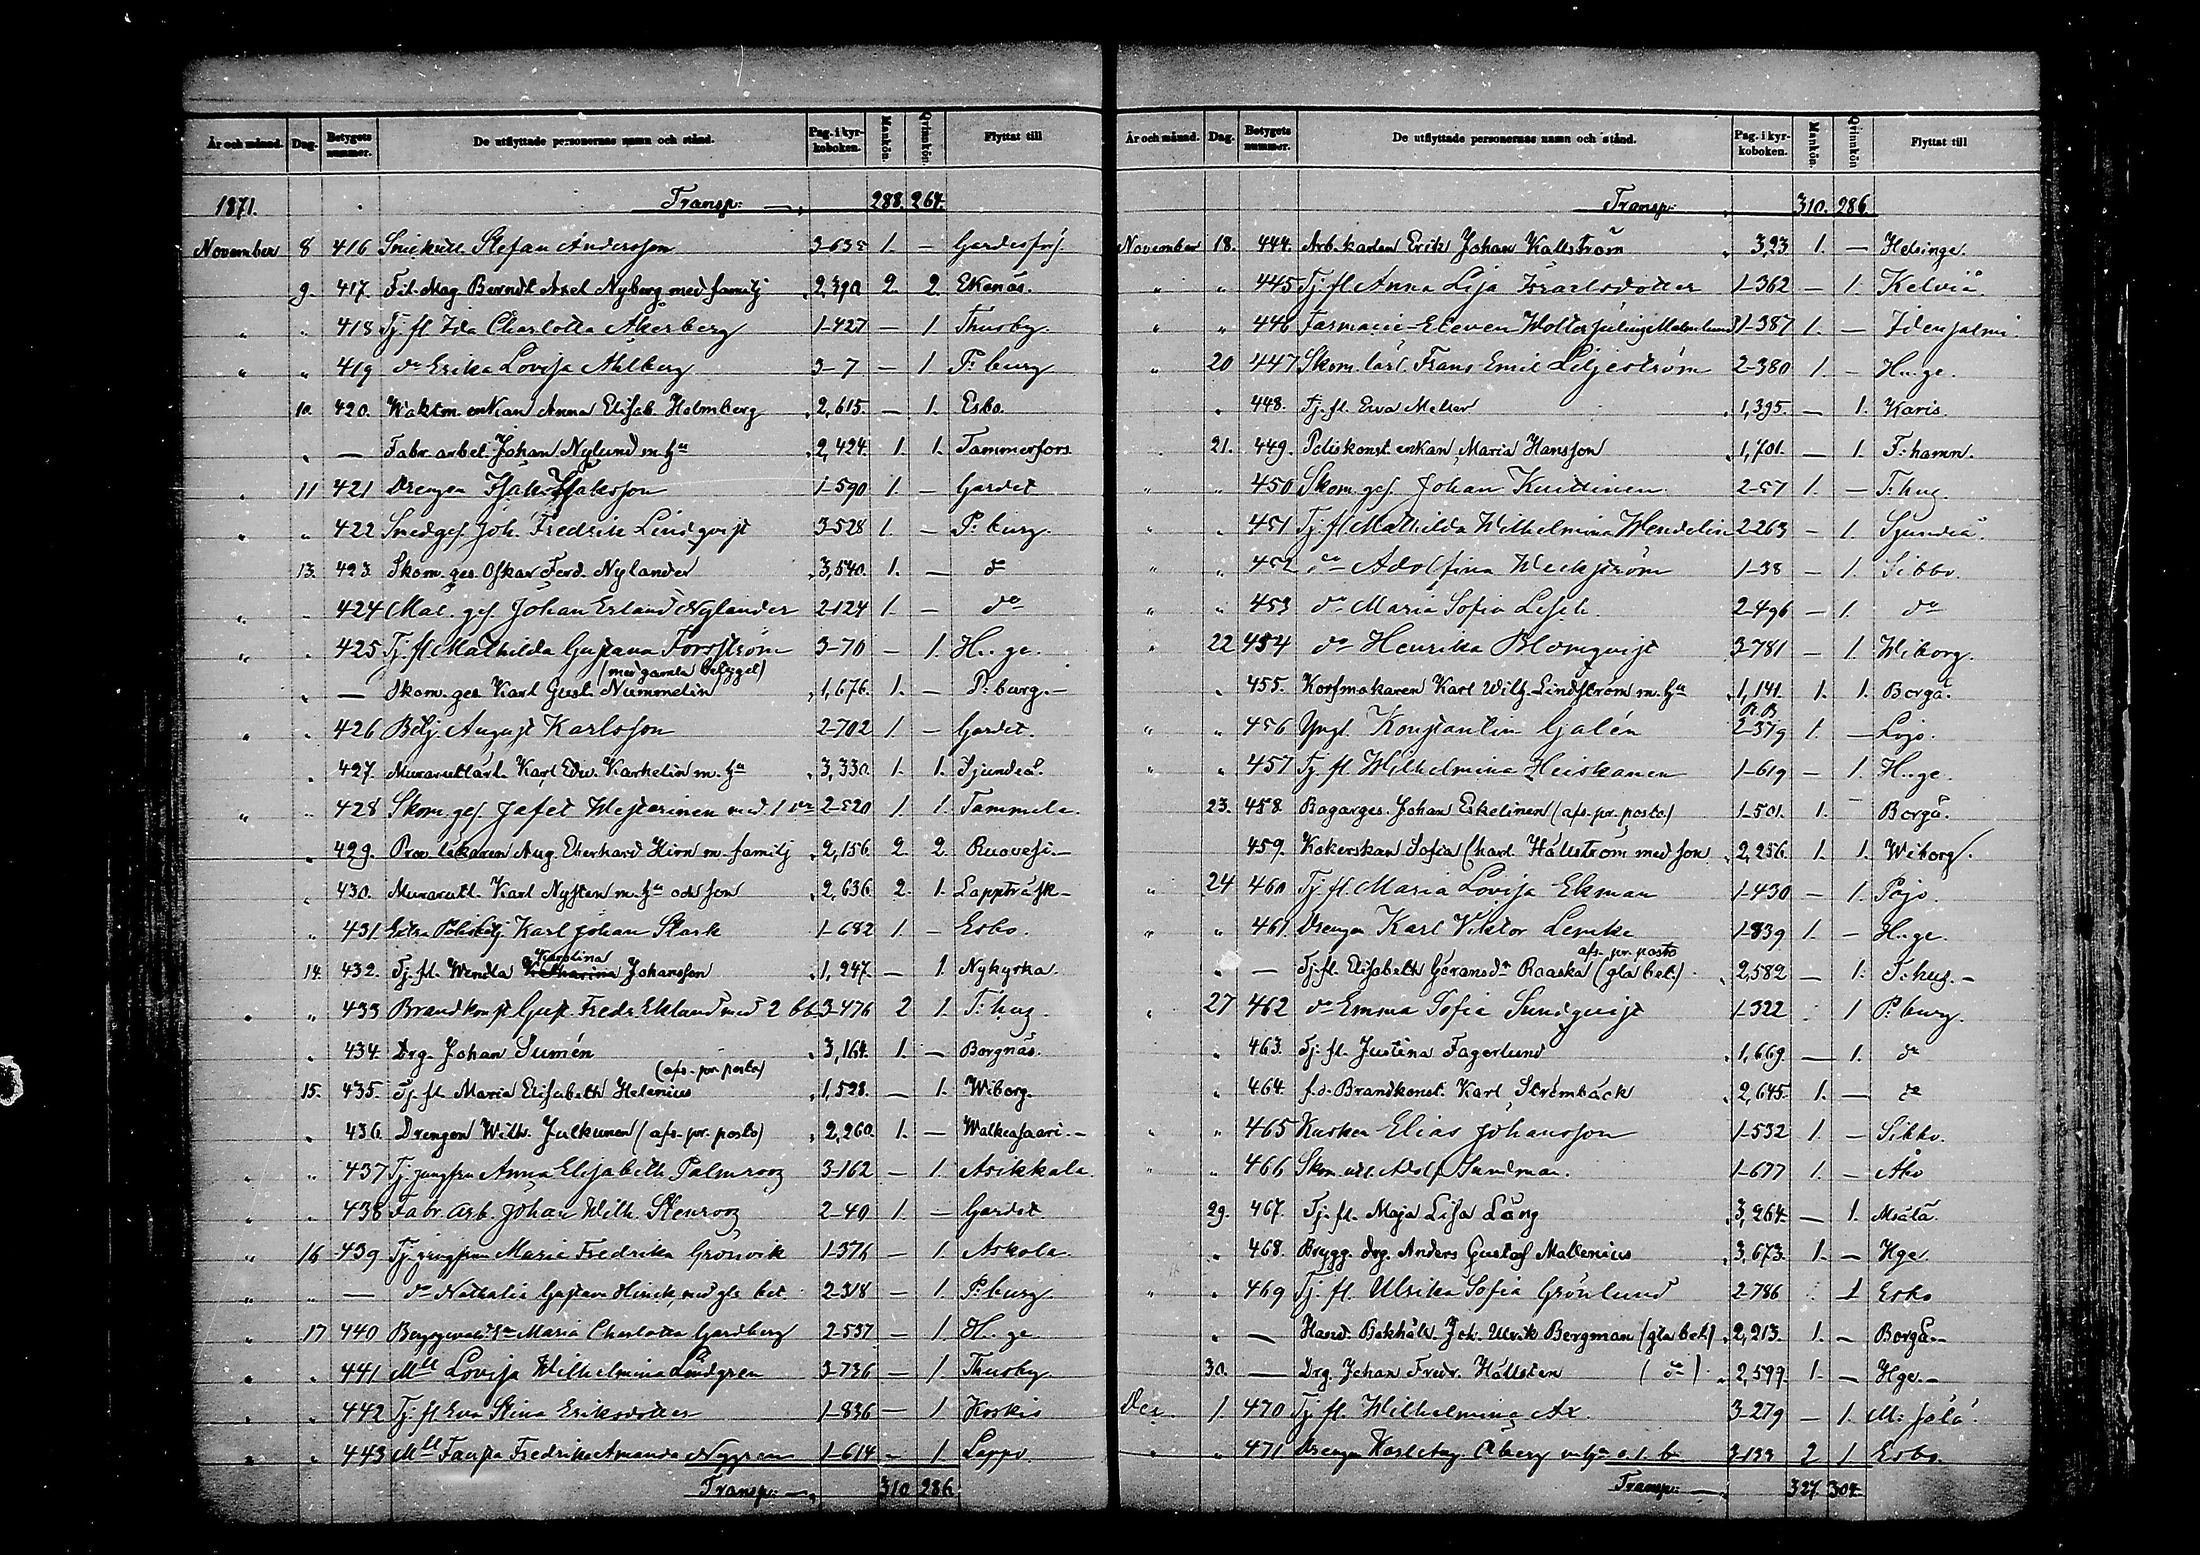 År och månad. Dag. Betygets nummer. De utflyttade personernas namn och stånd. Pag. i kyrkoboken. Mankön. Qvinnkön. Flyttat till
1871. Transp: 288. 264.
November 8 416 Snick.utl. Stefan Andersson 3-635 1. —
9. 417. Fil. Mag Berndt Axel Nyberg med familj 2,390 2. 2. Ekenäs.
" " 418 Tj. fl Ida Charlotta Åkerberg 1-427 — 1 Thusby.
" " 419 do Erika Lovisa Ahlberg 3-7 — 1 P:burg
10. 420. Waktm. enkan Anna Elisab. Holmberg 2,615. — 1. Esbo.
" — Fabr. arbet. Johan Nylund m. hu 2,424. 1. 1. Tammerfors
" 11 421 Drengen Isak Isaksson 1-590 1. — Gardet
" " 422 Smedges. Joh. Fredrik Lindqvist 3-528 1. — P:burg.
13. 423. Skom. ges. Oskar Ferd. Nylander 3,540. 1. — do
" " 424 Mal. ges. Johan Erland Nylander 2-124 1. — do
" " 425 Tj. fl Mathilda Gustava Forsström 3-70 — 1. H..ge.
(med gamla betyget)
" — Skom. ges. Karl Gust. Nummelin 1,676. 1. — P:burg.—
" " 426 Betj. August Karlsson 2-702 1. — Gardet.
" 427. Murareutlärl. Karl Edv. Karhelin m. hu 3,330. 1. 1. Sjundeå.
" " 428 Skom. ges. Jafet Westerinen med 2-520 1. 1. Tammela.
" 429. Prov. läkaren Aug. Eberhard Hirn m. familj 2,156. 2. 2. Ruovesi.—
" 430. Murareutl. Karl Nysten m. hu och son 2,636. 2. 1. Lappträsk—
" 431 Extra Polisbetj Karl Johan Stark 1-682 1. — Esbo.
Karolina
14. 432. Tj. fl. Wendla Katharina Johansson 1,247. — 1. Nykyrka.
" " 433 Brandkonst Gust. Fredr. Eklund med 2 bb 3-476 2 1. T:hug.
" 434. Drg. Johan Sumén 3,164. 1. — Borgnäs.
(afs. pr. posto)
15. 435. Tj. fl. Maria Elisabeth Helenius 1,528. — 1. Wiborg.
" 436. Drengen Wilh. Julkunen (afs. pr. posto) 2,260. 1. — Walkeasaari.—
" " 437 Tj. jungfru Anna Elisabeth Palmroos 3-162 — 1. Asikkala.
" " 438 Fabr. arb. Johan Wilh. Stenroos 2-40 1. — Gardet.
" 16 439 Tj. jungfrun Maria Fredrika Grönvik 1-376 — 1. Askola.
" " — do Nathalia Gustava Hinck, med gla bet. 2-318 — 1. P:burg.
" 17 440 Maria Charlotta Gardberg 2-537 — 1. H..ge.
" " 441 Mll Lovisa Wilhelmina Lindgren 3-736 — 1. Thusby.
" " 442 Tj. fl Eva Stina Eriksdotter 1-836 — 1 Koskis
" " 443 Mll Fredrika Amanda Nygren 1-614 — 1 Lappo.
Transp: 310 286.
År och månad. Dag. Betygets nummer. De utflyttade personernas namn och stånd. Pag. i kyrkoboken. Mankön. Qvinnkön Flyttat till
Transp: 310. 286.
November 18. 444. Arb. karlen Erik Johan Kallström 3,93. 1. — Helsinge.
" " 445 Tj. fl Anna Lisa Israelsdotter 1-362 — 1. Kelviå.
" " 446 Farmacie-Eleven Wolter Julius Malmlund 1-387 1. — Idensalmi
" 20 447 Skom. lärl. Frans Emil Liljeström 2-380 1. — H..ge.
" 448. Tj. fl. Eva Meller 1,395. — 1. Karis.
21. 449. Poliskonst. enkan Maria Hansson 1,701. — 1. F:hamn.
" " 450 Skom. ges. Johan Kuittinen. 2-57 1. — T:hug.
" " 451 Tj. fl Mathilda Wilhelmina Wendelin 2-263 — 1. Sjundeå.
" " 452 do Adolfina Weckström 1-38 — 1. Sibbo.
" " 453 do Maria Sofia Lesch. 2-496 — 1. do
" 22 454 do Henrika Blomqvist 3-781 — 1. Wiborg.
" 455. Korfmakaren Karl Wilh. Lindström m. hu 1,141. 1. 1. Borgå.
" " 456 Yngl. Konstantin Galén 2-379 1. — Lojo.
" " 457 Tj. fl. Wilhelmina Heiskanen 1-619 — 1. H..ge.
23. 458. Bagarges. Johan Eskelinen (afs. pr. posto) 1-501. 1. Borgå.
459. Kakerskan Sofia Charl. Hällström med son 2,256. 1. 1. Wiborg.
" 24 460 Tj. fl. Maria Lovisa Ekman 1-430 — 1. Pojo.
" " 461. Drengen Karl Viktor Lemke 1-839 1. — H..ge.
afs. pr. posto
" — Tj. fl. Elisabeth Göransdr Raaska (gla bet.) 2,582 — 1. T:hus.—
" 27 462 do Emma Sofia Sundqvist 1-322 1 P:burg.
" 463. Tj. fl. Justina Fagerlund 1,669. — 1. do
" 464. f.d. Brandkonst. Karl Strömbäck 2,645. 1. — do
" " 465 Kusken Elias Johansson 1-532 1. — Sibbo.
" " 466 Skom. utl. Adolf Sundman. 1-677 1. — Åbo
29. 467. Tj. fl. Maja Lisa Lång 3,264. — 1. Msälä.
" 468. Brygg. drg. Anders Gustaf Mallenius 3,673. 1. — Hge.
" " 469 Tj. fl. Ulrika Sofia Grönlund 2-786 1 Esbo
" — Hand. Bokhåll. Joh. Ulrik Bergman (gla bet.) 2,213. 1. — Borgå.—
30. — Drg. Johan Fredr. Hållsten (do) 2,599. 1. — Hge.—
Dec. 1. 470 Tj. fl. Wilhelmina Ax. 3-279 — 1. M:sälä.
" " 471. Drengen Karl Aug. Åberg m. hu o. 1. b. 3-133 2 1 Esbo
Transp: 327. 304.